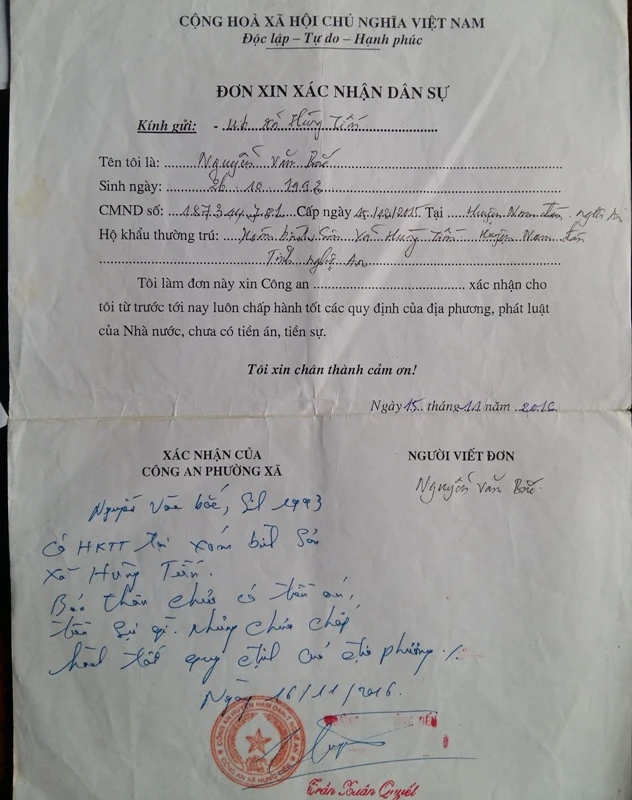 CỘNG HOÀ XÃ HỘI CHỦ NGHĨA VIỆT NAM
Độc lập – Tự do – Hạnh phúc
ĐƠN XIN XÁC NHẬN DÂN SỰ
Kính gửi: - xã Hùng Tiến
Tên tôi là: Nguyễn Văn Bắc
Sinh ngày: 26 . 10 . 1993
CMND số: 187344781 Cấp ngày 15/12/2015 Tại Huyện Nam Đàn. nghệ An
Hộ khẩu thường trú: Xóm bình Sơn Xã Hùng Tiến Huyện Nam đàn
Tỉnh nghệ An
Tôi làm đơn này xin Công an xác nhận cho
tôi từ trước tới nay luôn chấp hành tốt các quy định của địa phương, phát luật
của Nhà nước, chưa có tiền án, tiền sự.
Tôi xin chân thành cảm ơn!
Ngày 15 tháng 11 năm 2016
XÁC NHẬN CỦA NGƯỜI VIẾT ĐƠN
CÔNG AN PHƯỜNG XÃ
Nguyễn Văn Bắc
Nguyễn Văn bắc, 1993
Có HKTT tại xóm bình Sơn
xã Hùng Tiến.
Bản thân chưa có tiền án,
tiền sự gì. chấp
hành tốt quy định của địa phương ./.
Ngày 16/11/2016.
CÔNG AN HUYỆN NAM ĐÀN T. NGHỆ AN
CÔNG AN XÃ HÙNG TIẾN
Trần Xuân Quyết